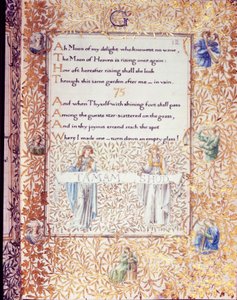 12
Ah Moon of my delight who knowest no wane,
The Moon of Heaven is rising once again:
How oft hereafter rising shall she look
Through this same garden after me ... in vain.
75
And when Thyself with shining foot shall pass
Among the guests star-scattered on the grass,
And in thy joyous errand reach the spot
Where I made one ... turn down an empty glass!
TAMAM